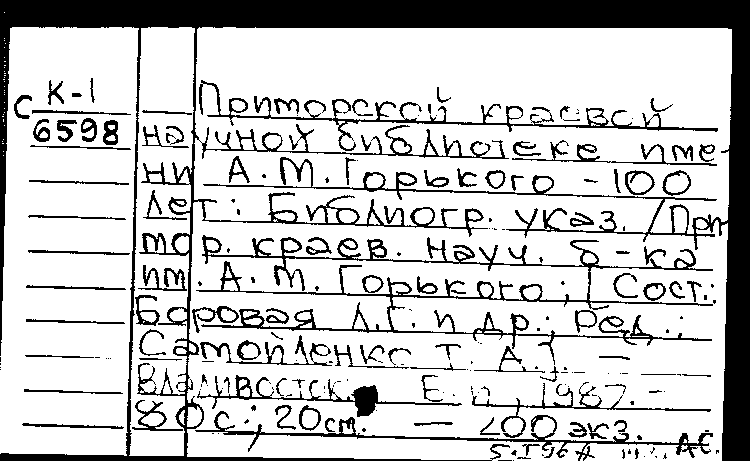 с К-1
6598
Приморской краевой
научной библиотеке име-
ни А.М.Горького -100
лет: Библиогр. указ. /При
мор. краев. науч. б-ка
им. А.М. Горького; [Сост.:
Боровая Л.Г. и др.; Ред.:
Самойленко Т.А.]. —
Владивосток. Б.и, 1987. -
80 с.; 20см. — 200 экз.
АС.